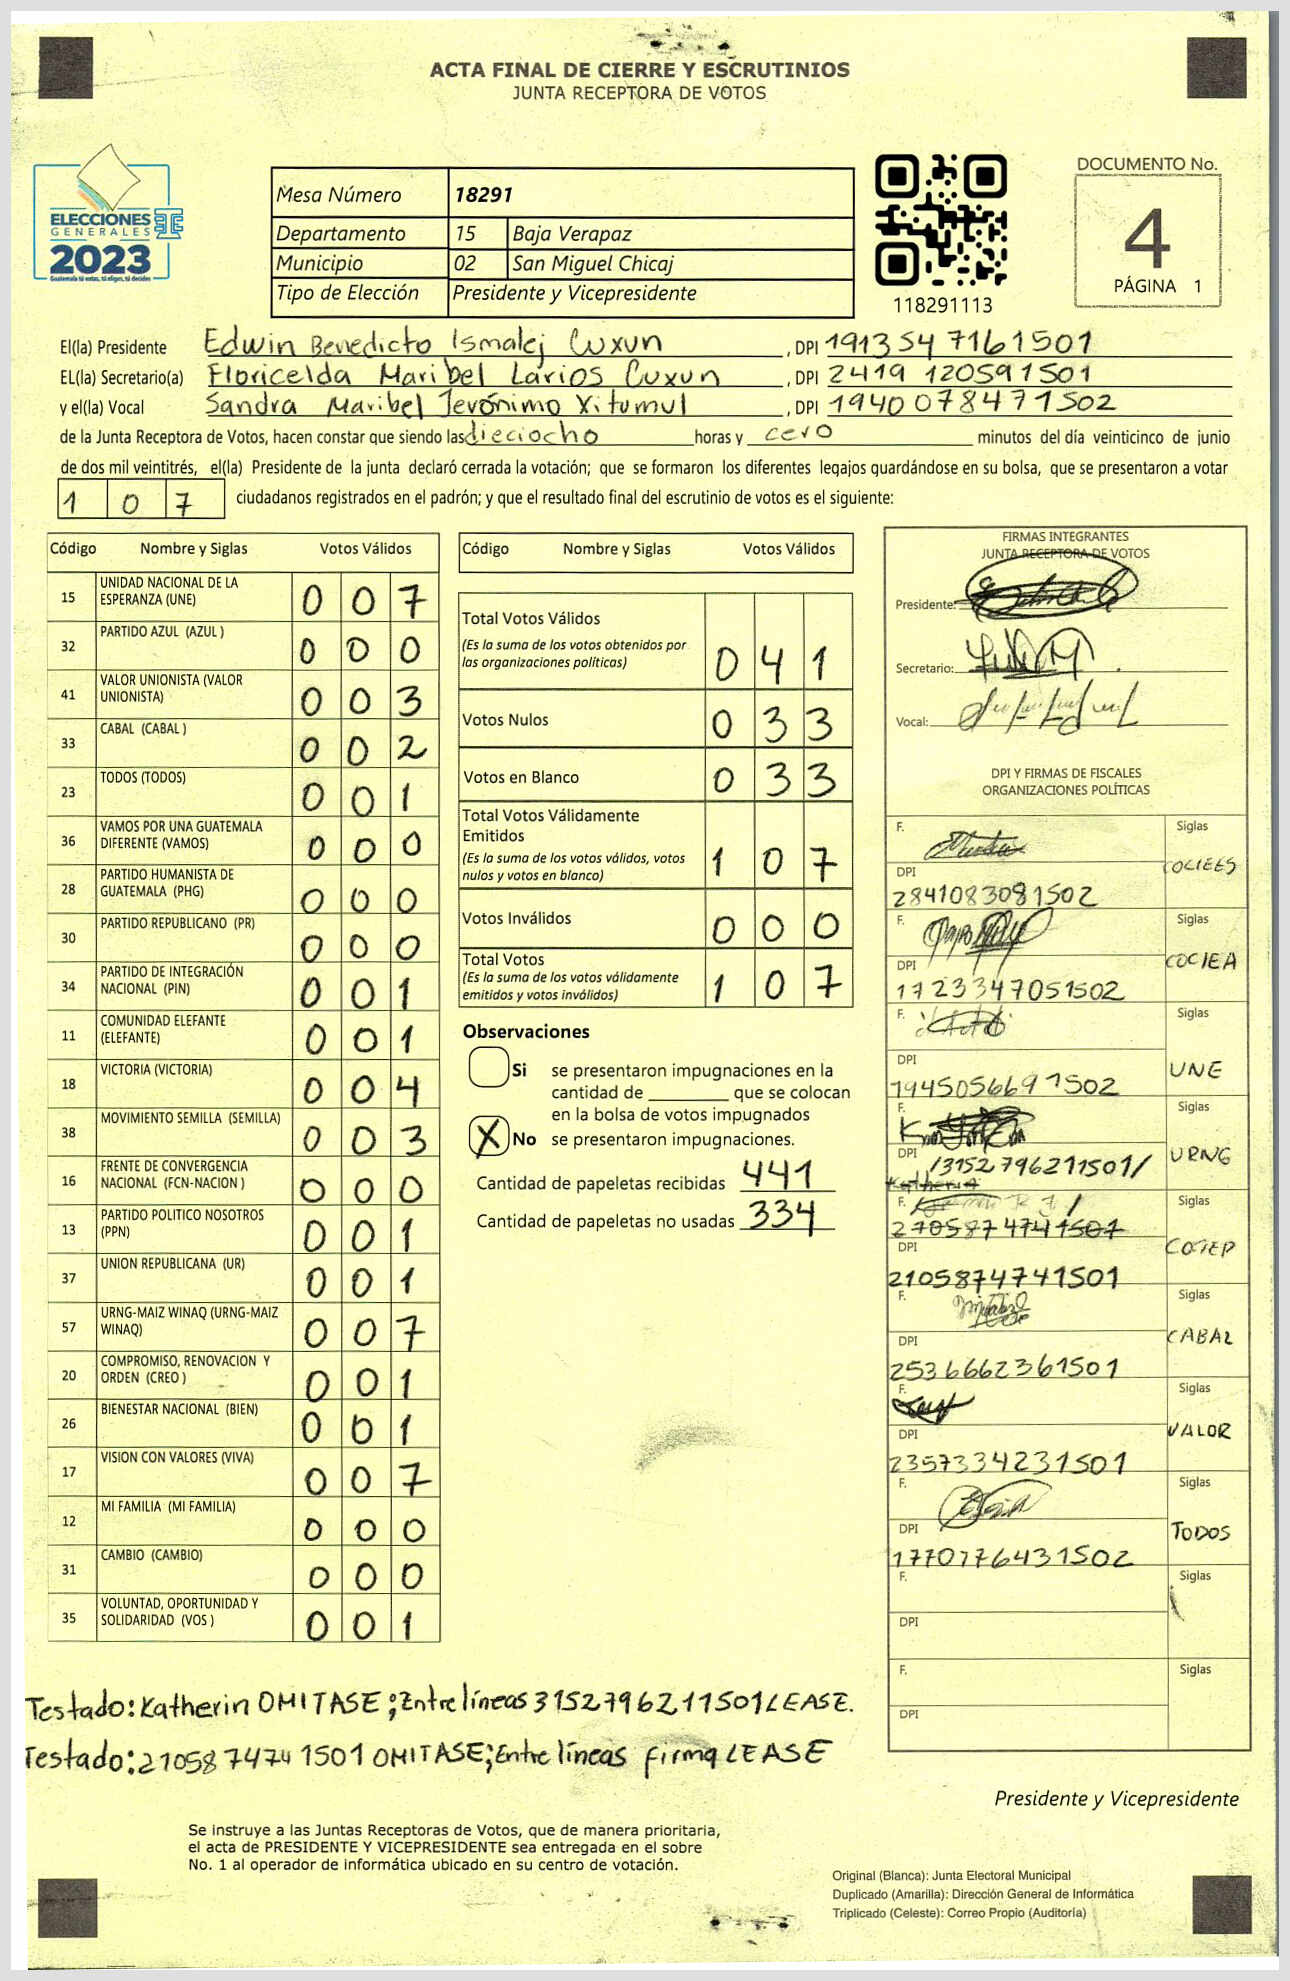 ACTA FINAL DE CIERRE Y ESCRUTINIOS
JUNTA RECEPTORA DE VOTOS
ELECCIONES
GENERALES
2023
Guatemala tú votas, tú eliges, tú decides
Mesa Número 18291
Departamento 15 Baja Verapaz
Municipio 02 San Miguel Chicaj
Tipo de Elección Presidente y Vicepresidente
118291113
DOCUMENTO No.
4
PÁGINA 1
El(la) Presidente Edwin Benedicto Ismalej Cuxun, DPI 1913547161501
EL(la) Secretario(a) Floricelda Maribel Larios Cuxun, DPI 2419 120591501
y el(la) Vocal Sandra Maribel Jerónimo Xitumul, DPI 1940078471502
de la Junta Receptora de Votos, hacen constar que siendo las dieciocho horas y cero minutos del día veinticinco de junio
de dos mil veintitrés, el(la) Presidente de la junta declaró cerrada la votación; que se formaron los diferentes legajos guardándose en su bolsa, que se presentaron a votar
107 ciudadanos registrados en el padrón; y que el resultado final del escrutinio de votos es el siguiente:
Código Nombre y Siglas Votos Válidos
15 UNIDAD NACIONAL DE LA ESPERANZA (UNE) 007
32 PARTIDO AZUL (AZUL ) 000
41 VALOR UNIONISTA (VALOR UNIONISTA) 003
33 CABAL (CABAL ) 002
23 TODOS (TODOS) 001
36 VAMOS POR UNA GUATEMALA DIFERENTE (VAMOS) 000
28 PARTIDO HUMANISTA DE GUATEMALA (PHG) 000
30 PARTIDO REPUBLICANO (PR) 000
34 PARTIDO DE INTEGRACIÓN NACIONAL (PIN) 001
11 COMUNIDAD ELEFANTE (ELEFANTE) 001
18 VICTORIA (VICTORIA) 004
38 MOVIMIENTO SEMILLA (SEMILLA) 003
16 FRENTE DE CONVERGENCIA NACIONAL (FCN-NACION ) 000
13 PARTIDO POLITICO NOSOTROS (PPN) 001
37 UNION REPUBLICANA (UR) 001
57 URNG-MAIZ WINAQ (URNG-MAIZ WINAQ) 007
20 COMPROMISO, RENOVACION Y ORDEN (CREO ) 001
26 BIENESTAR NACIONAL (BIEN) 001
17 VISION CON VALORES (VIVA) 007
12 MI FAMILIA (MI FAMILIA) 000
31 CAMBIO (CAMBIO) 000
35 VOLUNTAD, OPORTUNIDAD Y SOLIDARIDAD (VOS ) 001
Código Nombre y Siglas Votos Válidos
Total Votos Válidos
(Es la suma de los votos obtenidos por
las organizaciones politicas) 041
Votos Nulos 033
Votos en Blanco 033
Total Votos Válidamente
Emitidos
(Es la suma de los votos válidos, votos
nulos y votos en blanco) 107
Votos Inválidos 000
Total Votos
(Es la suma de los votos válidamente
emitidos y votos inválidos) 107
Observaciones
Si se presentaron impugnaciones en la
cantidad de ________ que se colocan
en la bolsa de votos impugnados
X No se presentaron impugnaciones.
Cantidad de papeletas recibidas 441
Cantidad de papeletas no usadas 334
FIRMAS INTEGRANTES
JUNTA RECEPTORA DE VOTOS
Presidente:
Secretario:
Vocal:
DPI Y FIRMAS DE FISCALES
ORGANIZACIONES POLÍTICAS
F. Siglas
DPI COCIEES
2841083081502
F. Siglas
DPI COCIEA
1723347051502
F. Siglas
DPI UNE
1945056691502
F. Siglas
DPI /3152796211501/ URNG
Katherin
F. Siglas
2705874741501
DPI COTEP
2105874741501
F. Siglas
DPI CABAL
2536662361501
F. Siglas
DPI VALOR
2357334231501
F. Siglas
DPI TODOS
1770776431502
F. Siglas
DPI
F. Siglas
DPI
Testado: Katherin OMITASE; Entre líneas 3152796211501 LEASE.
Testado: 2105874741501 OMITASE; Entre líneas firma LEASE
Presidente y Vicepresidente
Se instruye a las Juntas Receptoras de Votos, que de manera prioritaria,
el acta de PRESIDENTE Y VICEPRESIDENTE sea entregada en el sobre
No. 1 al operador de informática ubicado en su centro de votación.
Original (Blanca): Junta Electoral Municipal
Duplicado (Amarilla): Dirección General de Informática
Triplicado (Celeste): Correo Propio (Auditoría)